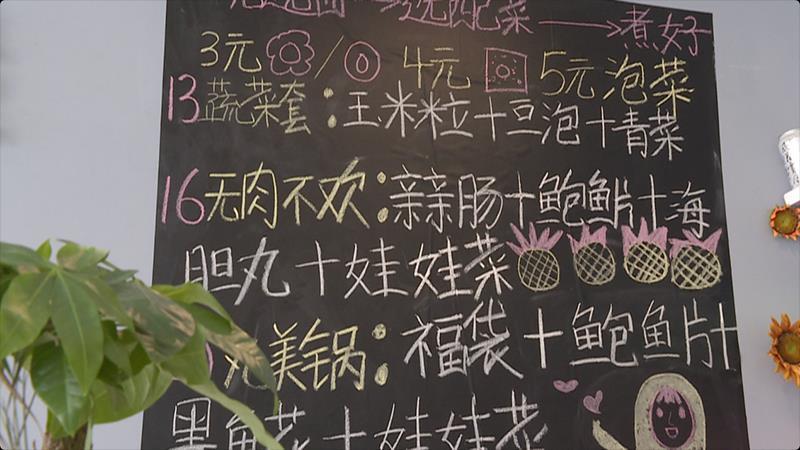 选配菜——→煮好
3元 / 4元 5元泡菜
13蔬菜套：玉米粒十豆泡十青菜
16无肉不欢：蒜肠十鲍鱼片十海
胆丸十娃娃菜
美锅：福袋十鲍鱼片十
黑鱼花十娃娃菜